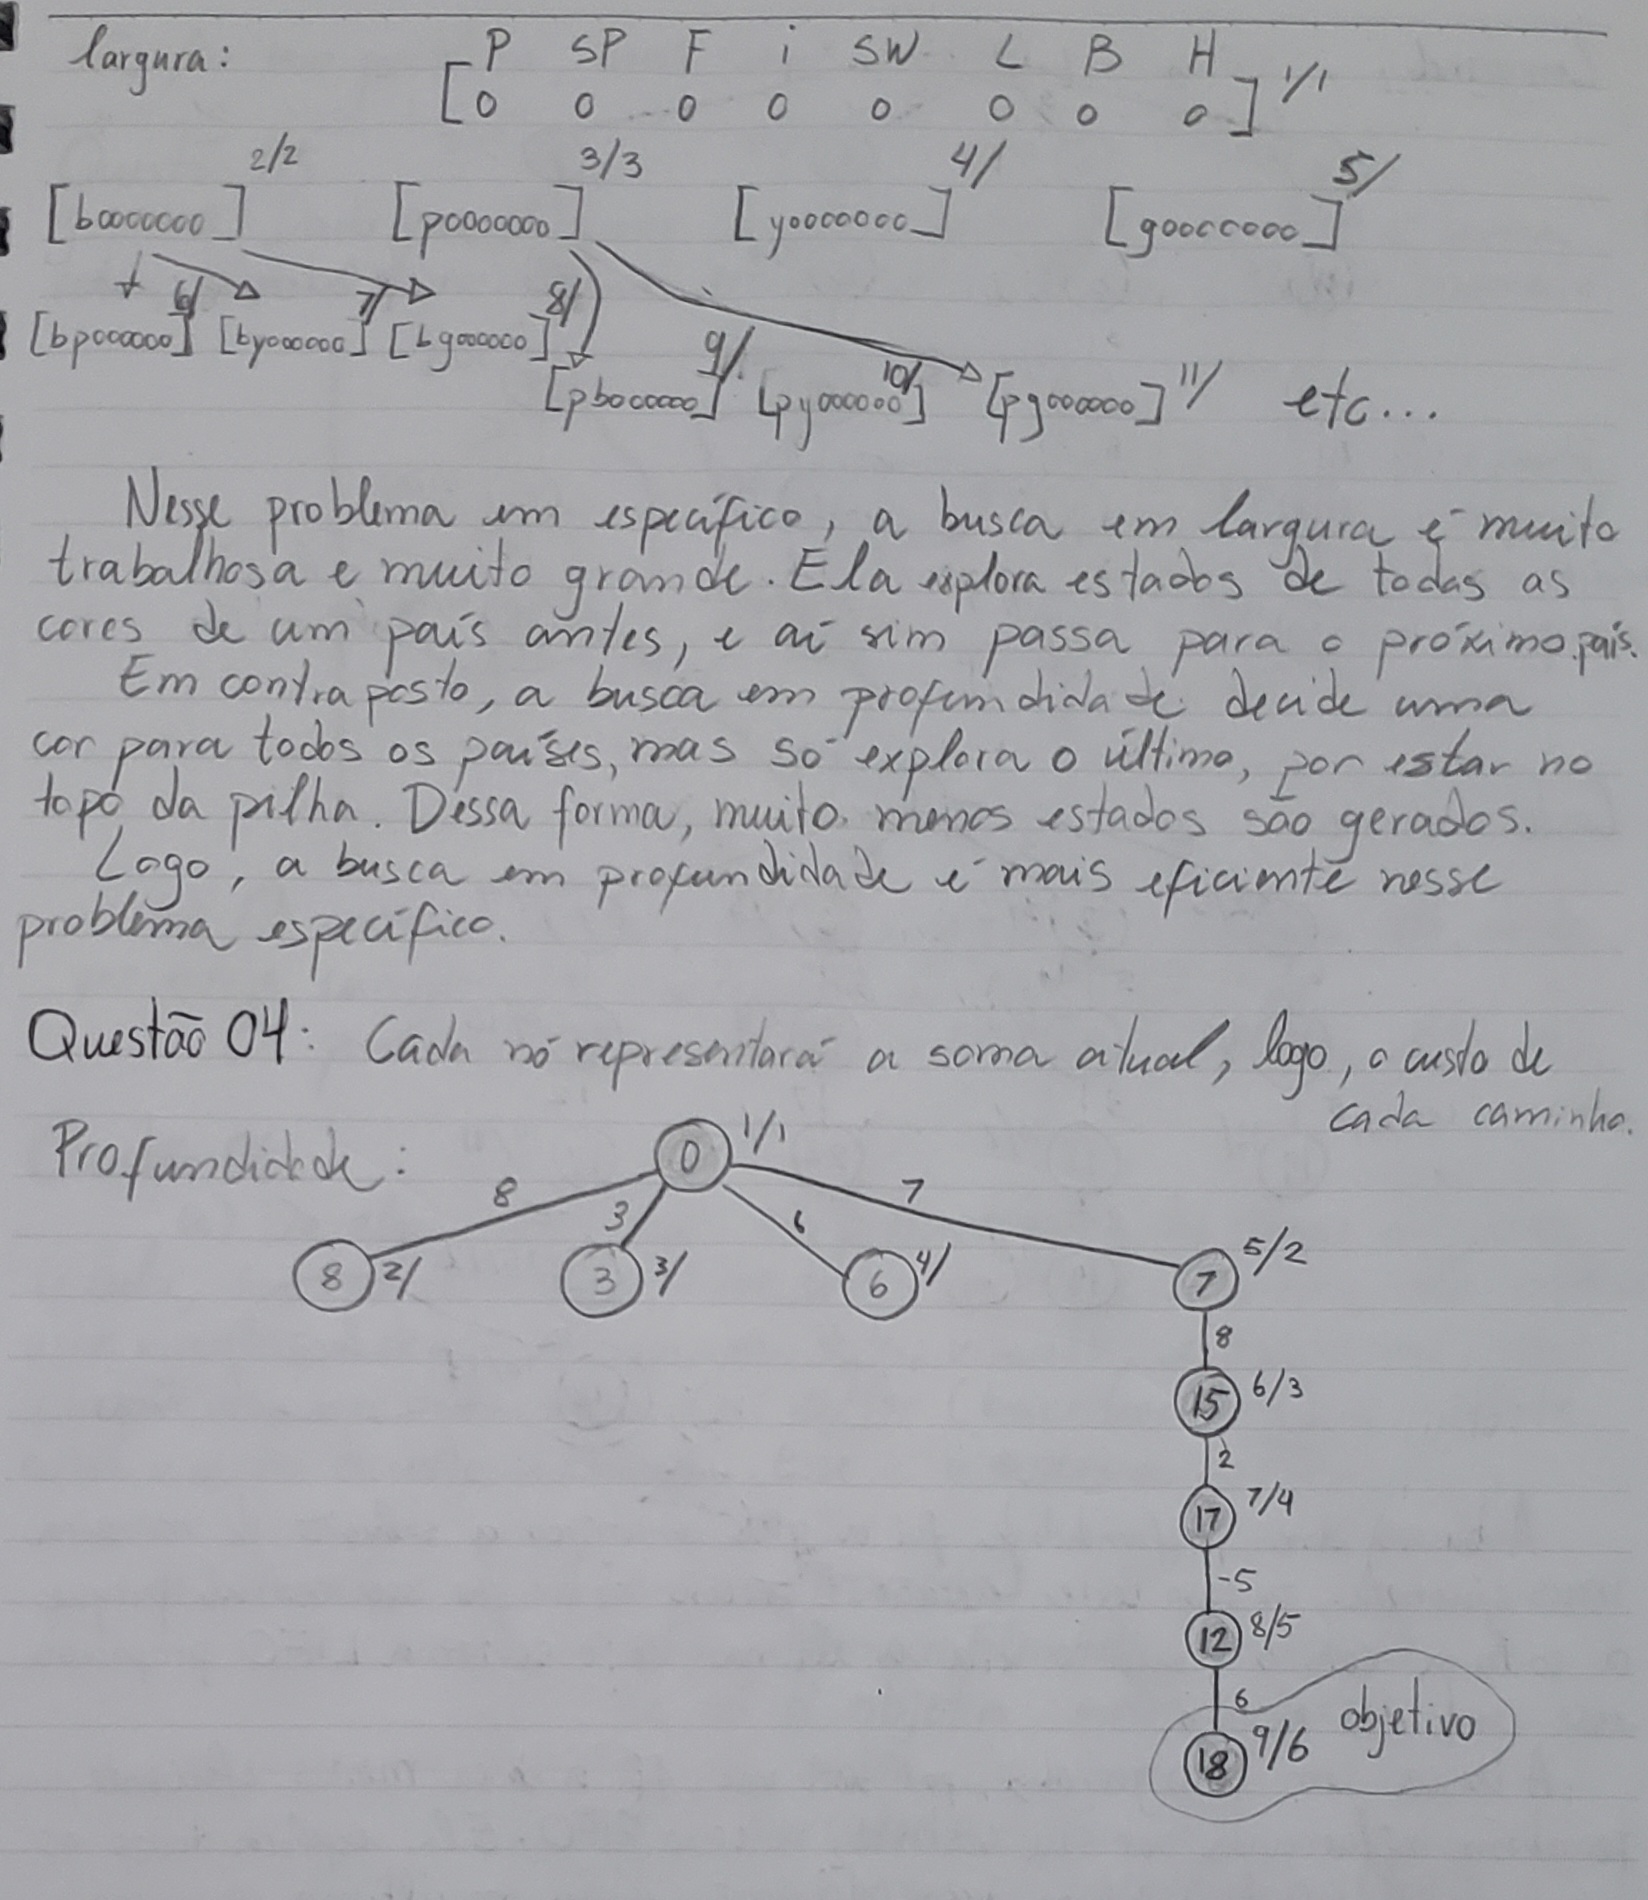 largura:
P SP F i SW L B H
[0 0 0 0 0 0 0 0] 1/1
[b0000000] 2/2 [p0000000] 3/3 [y0000000] 4/ [g0000000] 5/
[bp000000] 6/ [by000000] 7/ [bg000000] 8/
[pb000000] 9/ [py000000] 10/ [pg000000] 11/ etc...
Nesse problema em específico, a busca em largura é muito
trabalhosa e muito grande. Ela explora estados de todas as
cores de um país antes, e aí sim passa para o próximo país.
Em contraposto, a busca em profundidade decide uma
cor para todos os países, mas só explora o último, por estar no
topo da pilha. Dessa forma, muito menos estados são gerados.
Logo, a busca em profundidade é mais eficiente nesse
problema específico.
Questão 04: Cada nó representará a soma atual, logo, o custo de
cada caminho.
Profundidade:
0 1/1
8 3 6 7
8 2/ 3 3/ 6 4/ 7 5/2
8
15 6/3
2
17 7/4
-5
12 8/5
6
18 9/6 objetivo